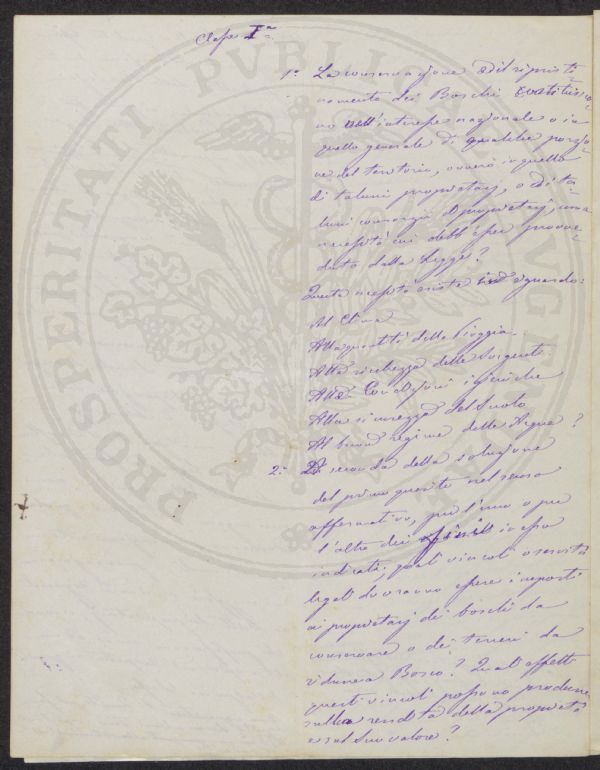 Classe Iª
1º La conservazione ed il ripristi-
namento dei Boschi costituisco-
no nell'interesse nazionale o in
quello generale di qualche porzio-
ne del territorio, ovvero in quello
di taluni proprietarj, o di ta-
luni consorzii di proprietarj, una
necessità cui debb'essere provve-
duto dalla Legge?
Questa necessità esiste in riguardo:
Al Clima
Alla quantità della Pioggia
Alla ricchezza delle Sorgenti
Alle Condizioni igieniche
Alla sicurezza del Suolo
Al buon regime delle Acque?
2º A seconda della soluzione
del primo quesito nel senso
affermativo, per l'uno o per
l'altro dei in esso
indicati; quali vincoli o servitù
legali dovranno essere imposti
ai proprietarj dei boschi da
conservare o dei terreni da
ridurre a Bosco? Quali effetti
questi vincoli possono produrre
sulla rendita della proprietà
e sul suo valore?
PROSPERITATI PUBLICAE AUGENDAE